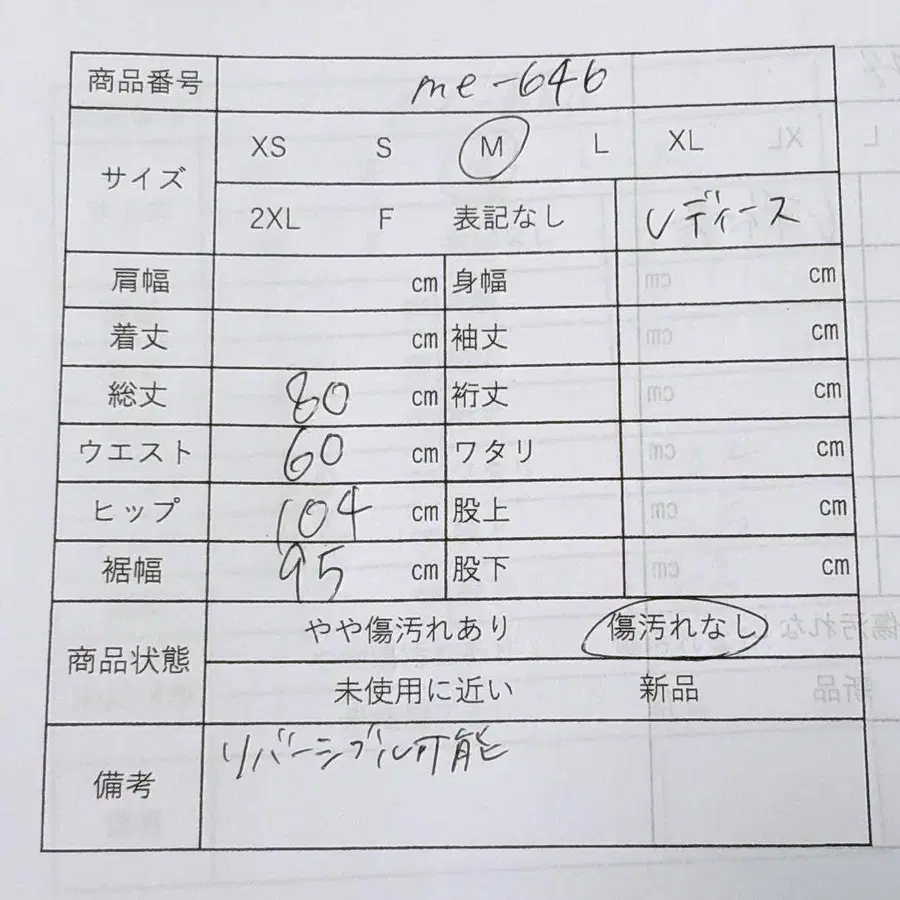 商品番号 me-646
サイズ XS S M L XL
2XL F 表記なし レディース
肩幅 cm 身幅 cm
着丈 cm 袖丈 cm
総丈 80 cm 裄丈 cm
ウエスト 60 cm ワタリ cm
ヒップ 104 cm 股上 cm
裾幅 95 cm 股下 cm
商品状態 やや傷汚れあり 傷汚れなし
未使用に近い 新品
備考 リバーシブル可能